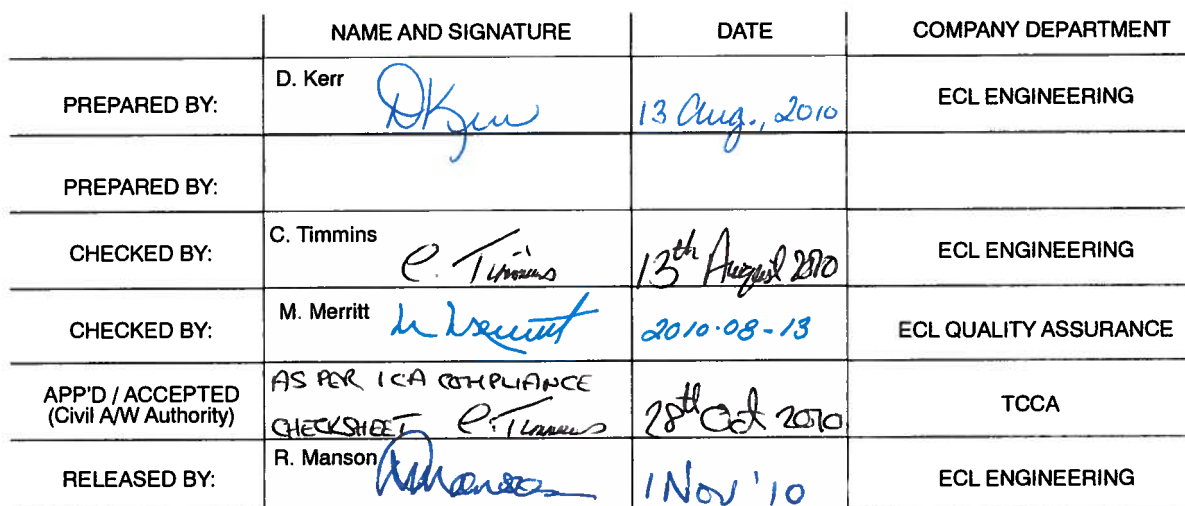 NAME AND SIGNATURE DATE COMPANY DEPARTMENT
PREPARED BY: D. Kerr DKerr 13 Aug., 2010 ECL ENGINEERING
PREPARED BY:
CHECKED BY: C. Timmins C. Timmins 13th August 2010 ECL ENGINEERING
CHECKED BY: M. Merritt M Merritt 2010-08-13 ECL QUALITY ASSURANCE
APP'D / ACCEPTED
(Civil A/W Authority)
AS PER ICA COMPLIANCE
CHECKSHEET C. Timmins 28th Oct 2010 TCCA
RELEASED BY: R. Manson RManson 1 Nov '10 ECL ENGINEERING